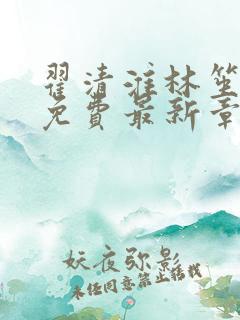 翟清淮林笙
免费最新章
妖夜弥影
未经同意禁止转载